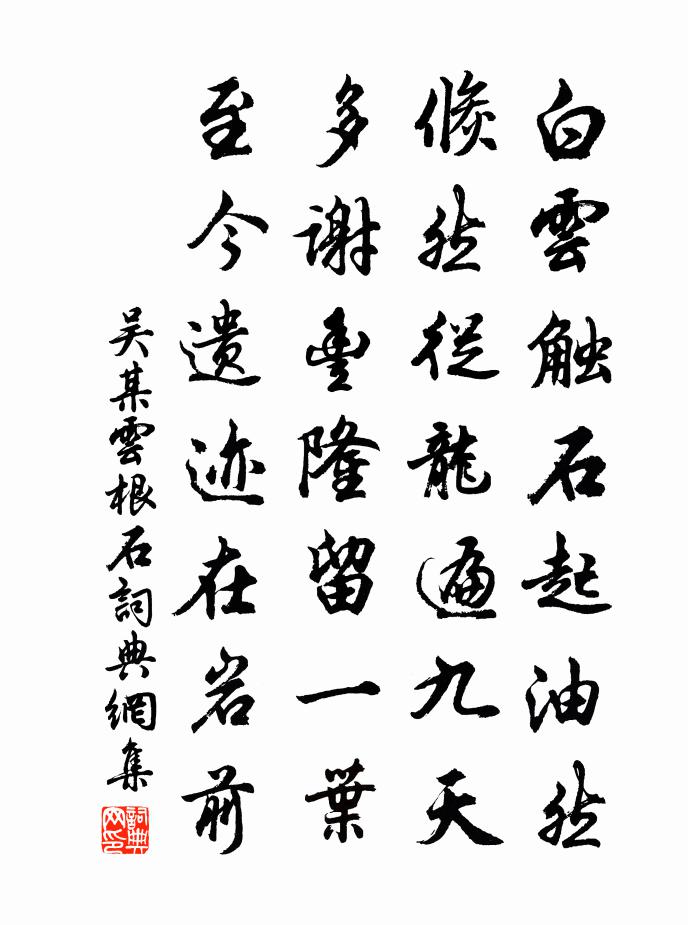 白雲触石起油然
倏然從龍遍九天
多謝豊隆留一葉
至今遗迹在岩前
吴某雲根石詞典網集
詞典网印